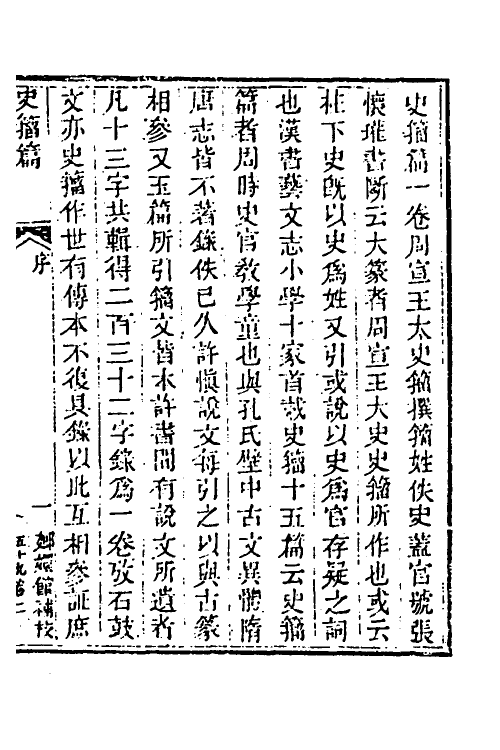 史籀篇一卷周宣王太史籀撰籀姓佚史蓋官號張
懷瓘書斷云大篆者周宣王太史史籀所作也或云
柱下史旣以史爲姓又引或說以史爲官存疑之詞
也漢書藝文志小學十家首載史籀十五篇云史籀
篇者周時史官敎學童也與孔氏壁中古文異體隋
唐志皆不著錄佚已久許愼說文每引之以與古篆
相參又玉篇所引籀文皆本許書閒有說文所遺者
凡十三字共輯得二百三十二字錄爲一卷攷石鼓
文亦史籀作世有傳本不復具錄以此互相參証庶
史籀篇
序
一
嫏嬛館補校
五十九卷二